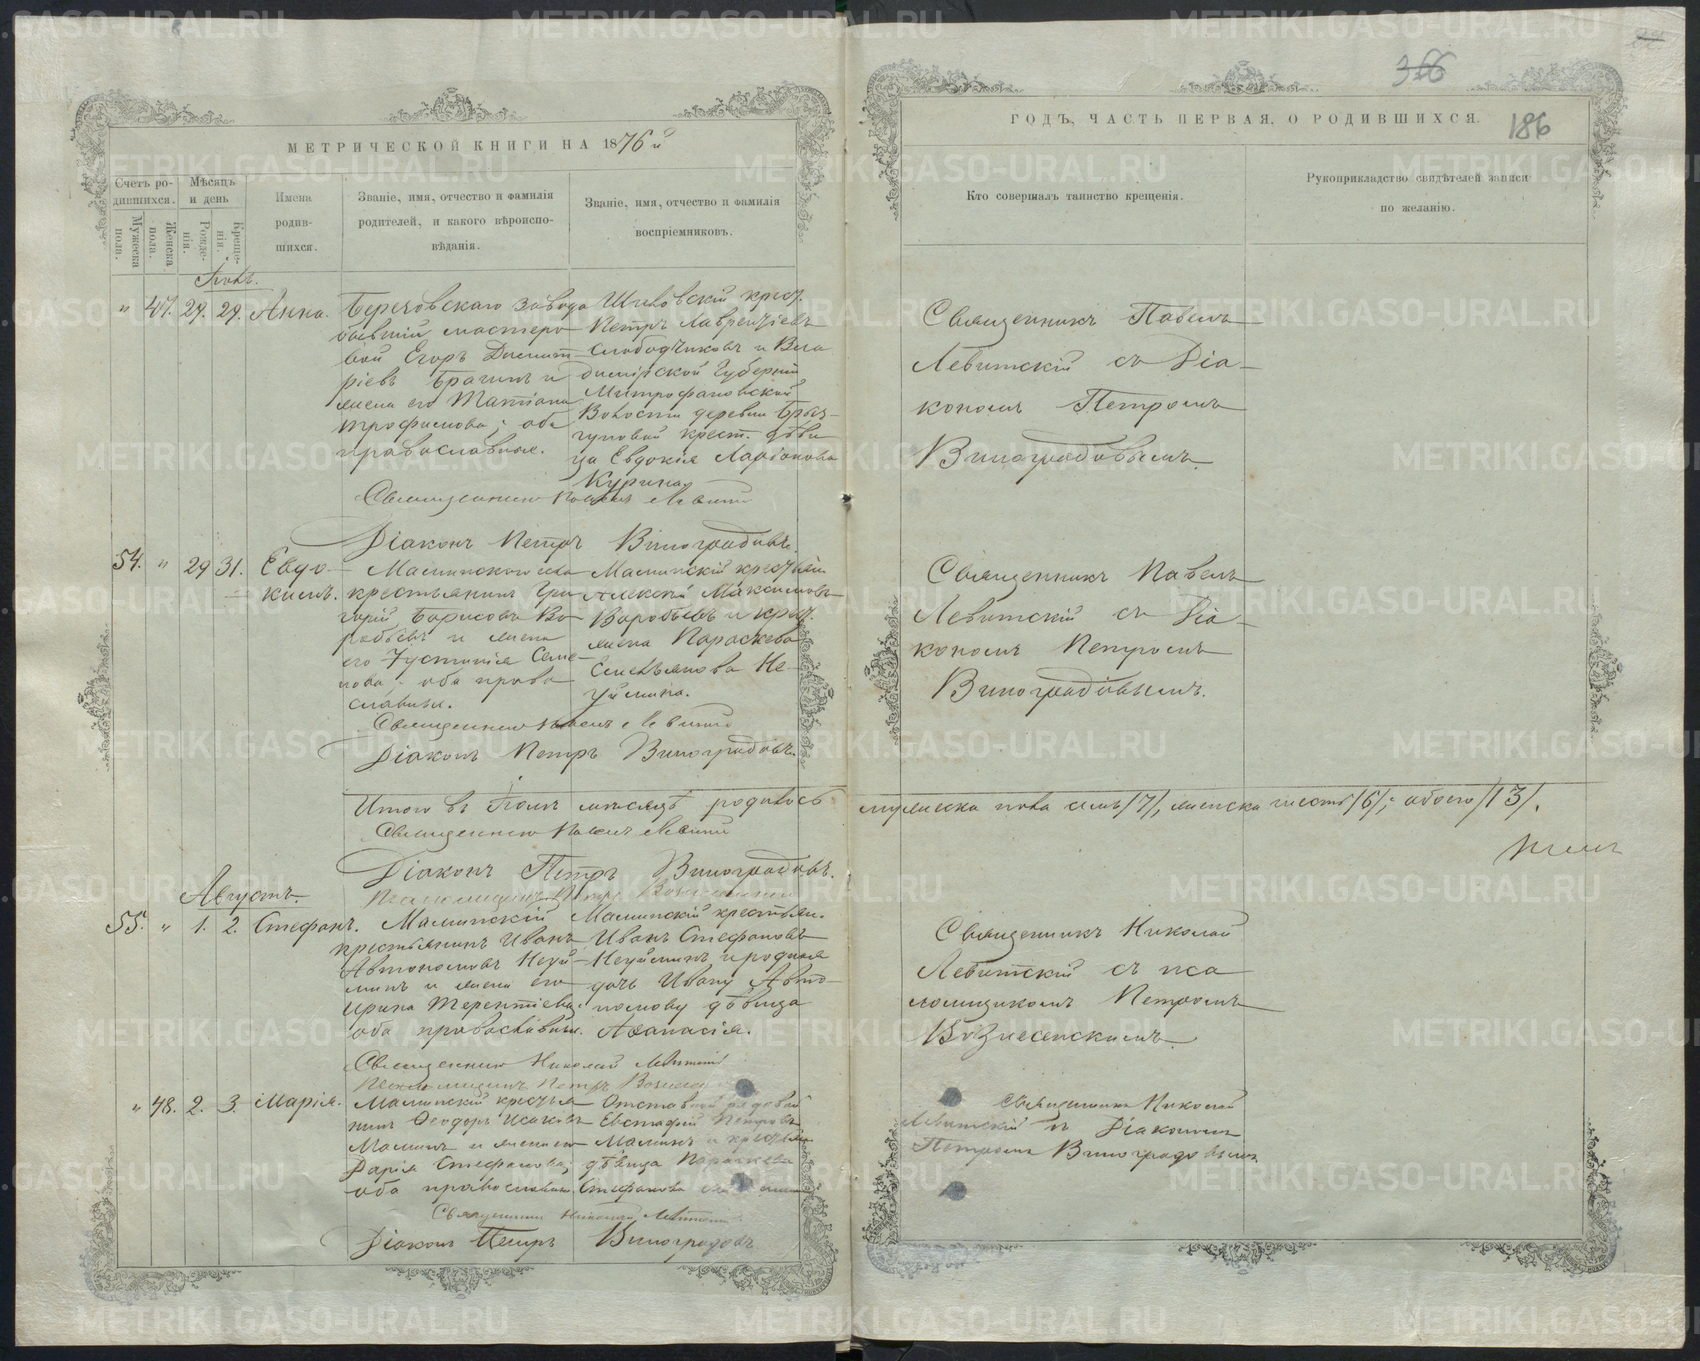 МЕТРИЧЕСКОЙ КНИГИ НА 1876й
Счетъ ро-
дившихся.
Мужеска пола.
Женска пола.
Мѣсяцъ
и день
Рожде-
нія.
Креще-
нія.
Имена
родив-
шихся.
Званіе, имя, отчество и фамилія
родителей, и какого вѣроиспо-
вѣданія.
Званіе, имя, отчество и фамилія
воспріемниковъ.
" 47. 27. 29. Анна.
Березовскаго завода
бывшій мастеро-
вой Егоръ Димит-
ріевъ Брагинъ и
жена его Татіана
Трофимова; оба
православные.
крест.
Петръ Лаврентіевъ
Слободчиковъ и Вла-
димірской Губерніи
Митрофановской
Волости деревни
крест. дѣви-
ца Евдокія Ларіонова
Священникъ Павелъ Левитскій
Діаконъ Петръ Виноградовъ.
54. " 29 31. Евдо-
кимъ.
Малинскаго села
крестьянинъ Гри-
горій Борисовъ Во-
робьевъ и жена
его Іустинія Семе-
нова; оба право-
славные.
Малинскій крестьян.
Алексѣй Максимовъ
Воробьевъ и крест.
жена Параскева
Не-
уймина.
Священникъ Павелъ Левитскій
Діаконъ Петръ Виноградовъ.
Итого въ Іюлѣ мѣсяцѣ родилось
Священникъ Павелъ Левитскій
Діаконъ Петръ Виноградовъ.
Псаломщикъ Петръ Вознесенскій
Августъ.
55. " 1. 2. Стефанъ.
Малинскій
крестьянинъ Иванъ
Автономовъ Неуй-
минъ и жена его
Ирина Терентіева;
оба православные.
Малинскій крестьян.
Иванъ Стефановъ
Неуйминъ и родная
дочь Ивану Авто-
номову дѣвица
Аѳанасія.
Священникъ Николай Левитскій
Псаломщикъ Петръ
" 48. 2. 3. Марія.
Малинскій крестья-
нинъ Ѳеодоръ Исаковъ
Малинъ и жена его
Дарія Стефанова;
оба православные.
Отставной рядовой
Евстафій Петровъ
Малинъ и крестьян.
дѣвица Параскева
Стефанова
Священникъ Николай Левитскій
Діаконъ Петръ Виноградовъ
186
ГОДЪ, ЧАСТЬ ПЕРВАЯ, О РОДИВШИХСЯ.
Кто совершалъ таинство крещенія.
Рукоприкладство свидѣтелей записи
по желанію.
Священникъ Павелъ
Левитскій съ Діа-
кономъ Петромъ
Виноградовымъ.
Священникъ Павелъ
Левитскій съ Діа-
кономъ Петромъ
Виноградовымъ.
мужеска пола семь /7/, женска шесть /6/; обоего /13/.
Священникъ Николай
Левитскій съ пса-
ломщикомъ Петромъ
Вознесенскимъ.
Священникъ Николай
Левитскій съ Діакономъ
Петромъ Виноградовымъ.
METRIKI.GASO-URAL.RU